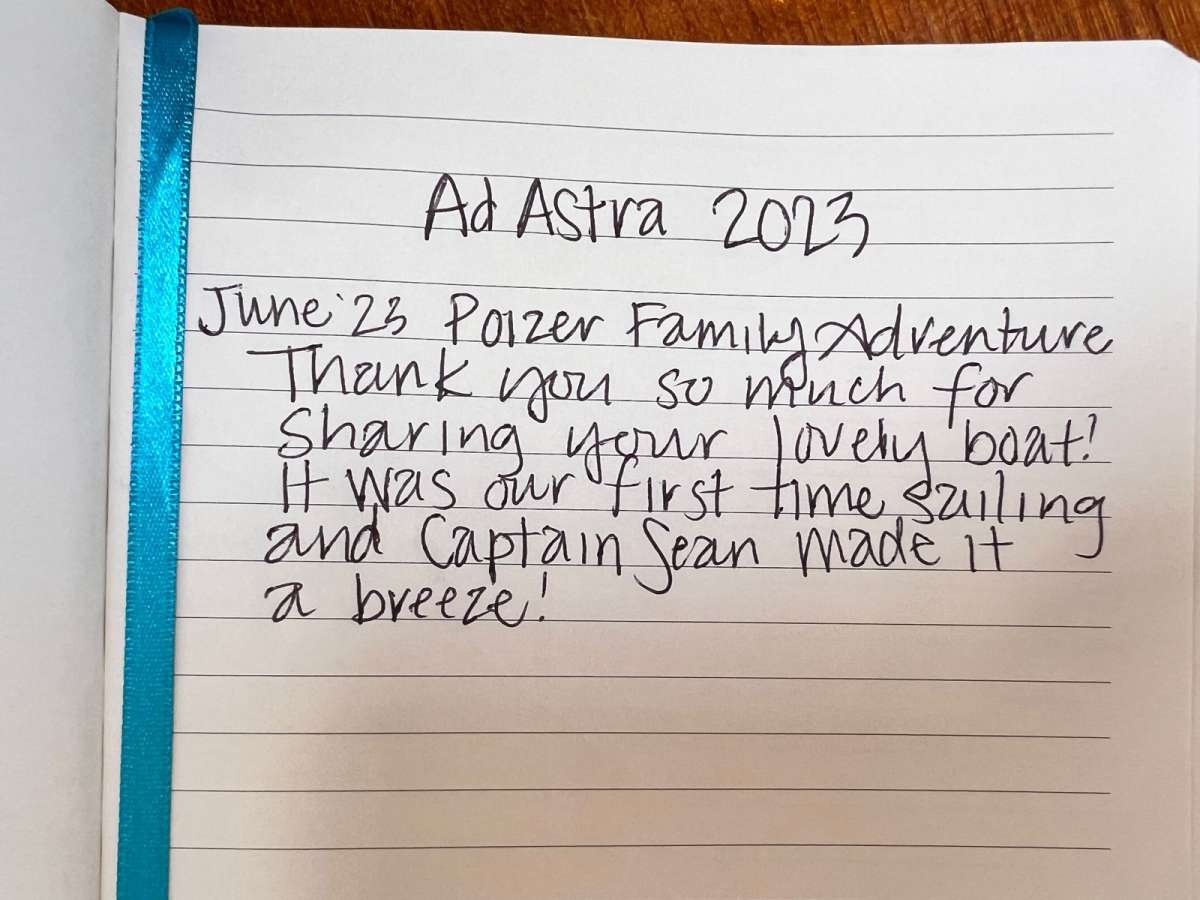 Ad Astra 2023
June '23 Poizer Family Adventure
Thank you so much for
sharing your lovely boat!
It was our first time sailing
and Captain Sean made it
a breeze!